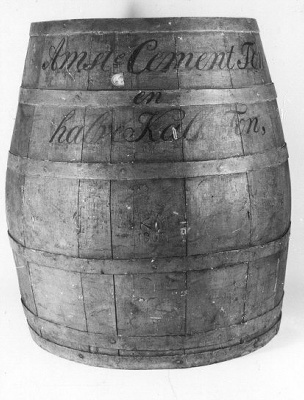 Amste Cement To
en
halve Kalk Ton,